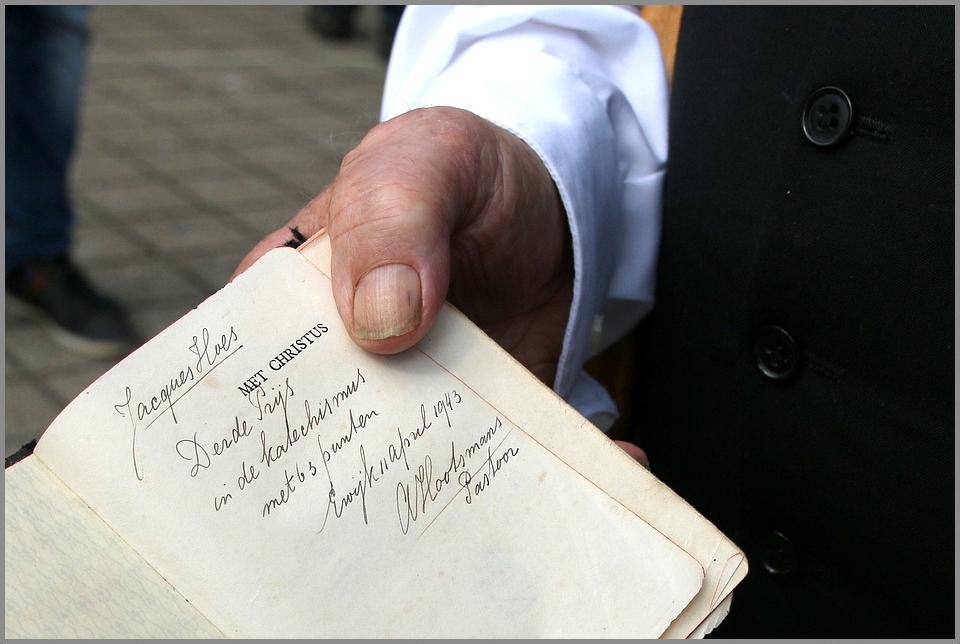 Jacques Hoes
MET CHRISTUS
Derde Prijs
in de katechismus
met 63 punten
Ewijk 11 April 1943
Hootsmans
Pastoor